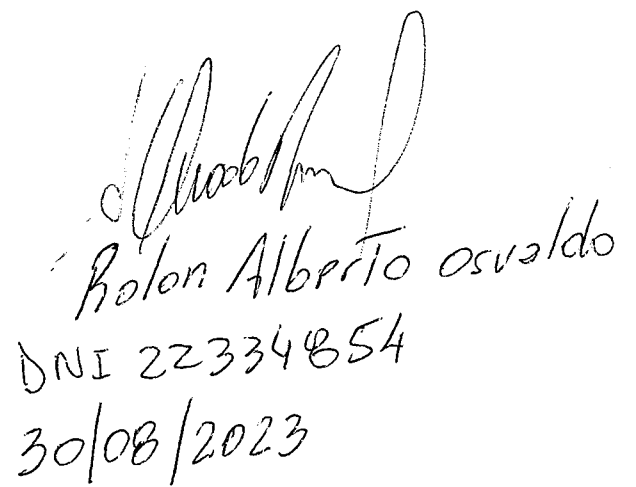 Rolon Alberto Osvaldo
DNI 22334854
30/08/2023